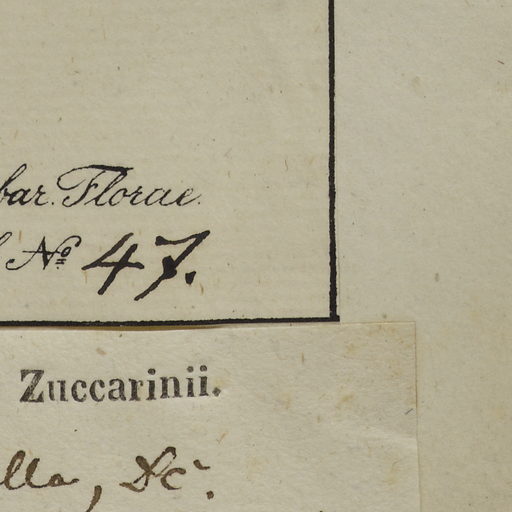 bar. Florae.
Nº 47.
Zuccarinii.
lla, &c.